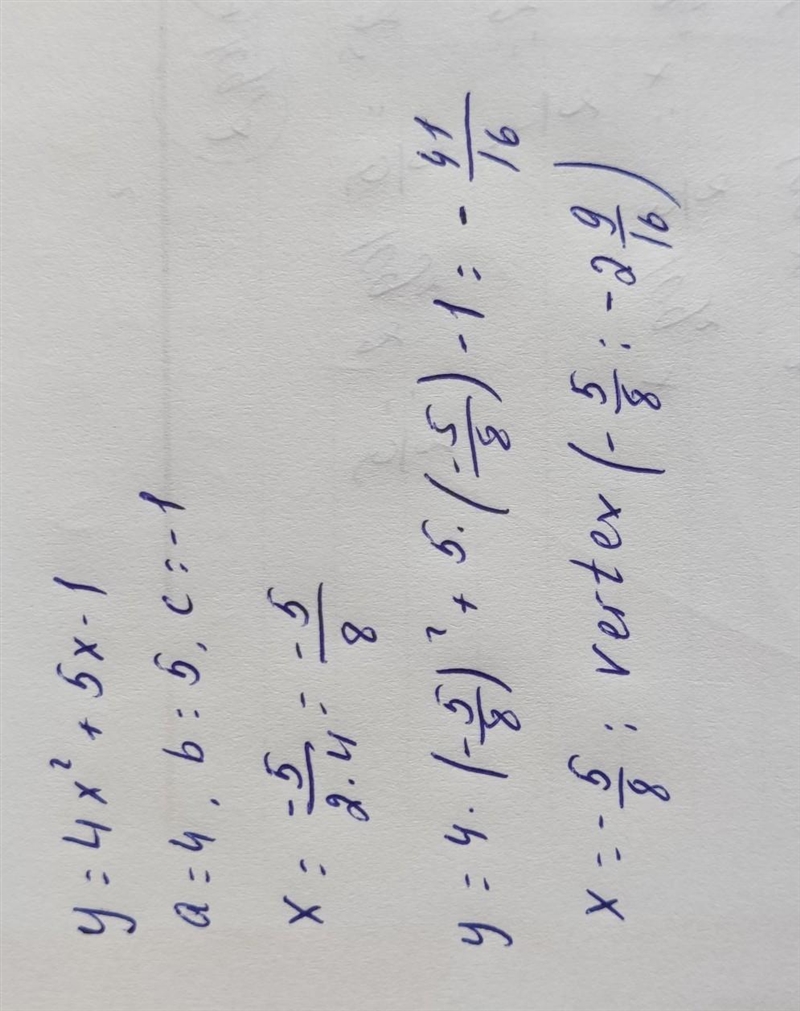 y = 4x² + 5x - 1
a = 4, b = 5, c = -1
x = -5/2·4 = -5/8
y = 4·(-5/8)² + 5·(-5/8) - 1 = - 41/16
x = -5/8; vertex (-5/8; -2 9/16)